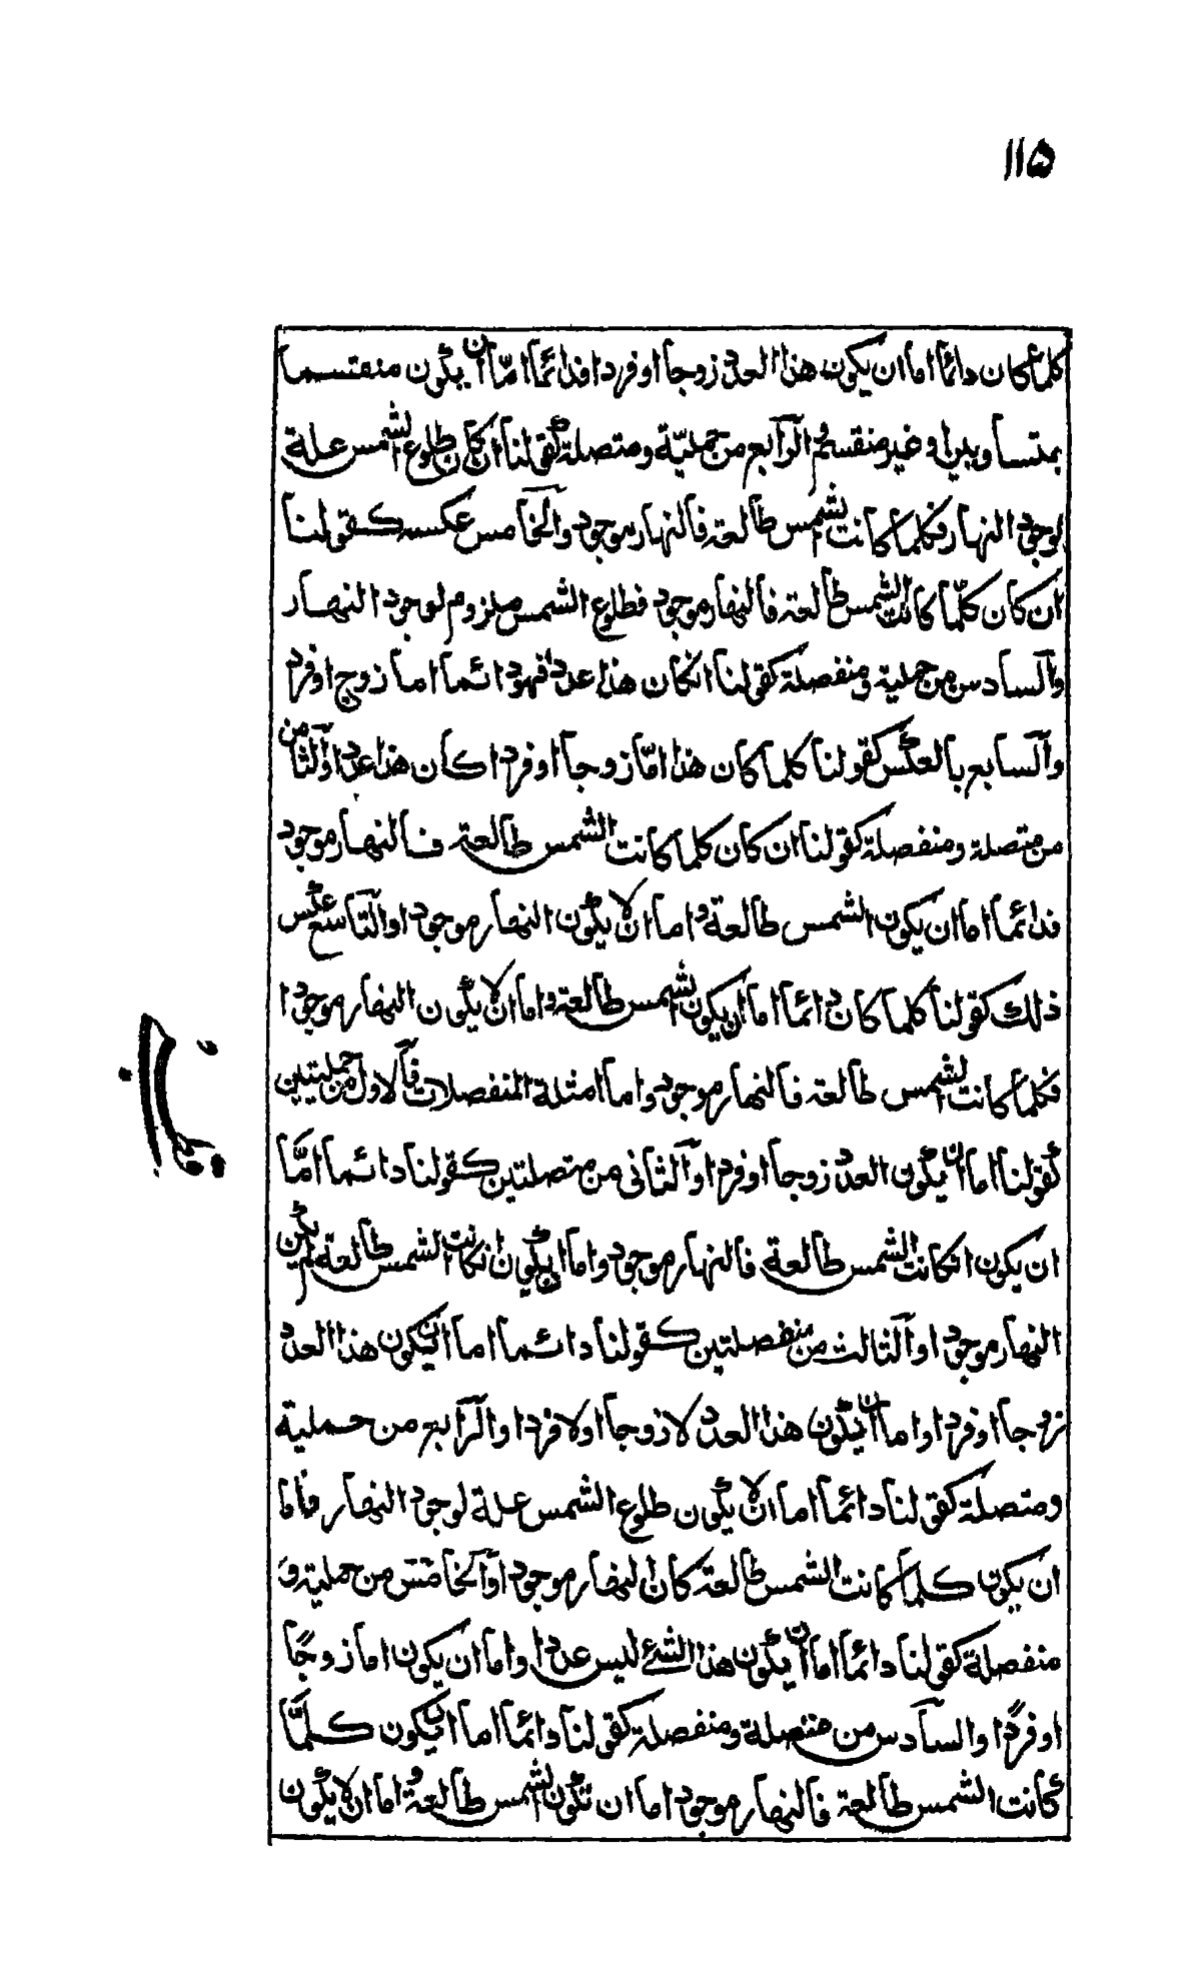 ۱۱۵
كلما كان دائما اما ان يكون هذا العدد زوجا او فردا فدائما امّا ان يكون منقسما
بمتساويين او غير منقسم والرابع من حمليّة ومتصلة كقولنا ان كان طلوع الشمس علة
لوجود النهار فكلما كانت الشمس طالعة فالنهار موجود والخامس عكسه كقولنا
ان كان كلّما كانت الشمس طالعة فالنهار موجود فطلوع الشمس ملزوم لوجود النهار
والسادس من حملية ومنفصلة كقولنا انكان هذا عددا فهو دائما اما زوج او فرد
والسابع بالعكس كقولنا كلما كان هذا امّا زوجا او فردا كان هذا عددا والثامن
من متصلة ومنفصلة كقولنا ان كان كلما كانت الشمس طالعة فالنهار موجود
فدائما اما ان يكون الشمس طالعة و اما ان لا يكون النهار موجودا والتاسع عكس
ذلك كقولنا كلما كان دائما اما ان يكون الشمس طالعة واما ان لا يكون النهار موجودا
فكلما كانت الشمس طالعة فالنهار موجود واما امثلة المنفصلات فالاول من حمليتين
كقولنا اما ان يكون العدد زوجا او فردا والثانى من متصلتين كقولنا دائما امّا
ان يكون انكانت الشمس طالعة فالنهار موجود واما ان يكون انكانت الشمس طالعة لم يكن
النهار موجودا والثالث من منفصلتين كقولنا دائما اما ان يكون هذا العدد
زوجا او فردا واما ان يكون هذا العدد لا زوجا او لا فردا والرابع من حملية
ومتصلة كقولنا دائما اما ان لا يكون طلوع الشمس علة لوجود النهار واما
ان يكون كلما كانت الشمس طالعة كان النهار موجودا والخامس من حملية و
منفصلة كقولنا دائما اما ان يكون هذا الشئ ليس عددا واما ان يكون اما زوجًا
او فردًا والسادس من متصلة ومنفصلة كقولنا دائما اما ان يكون كلمّا
كانت الشمس طالعة فالنهار موجود اما ان تكون الشمس طالعة و اما ان لا يكون